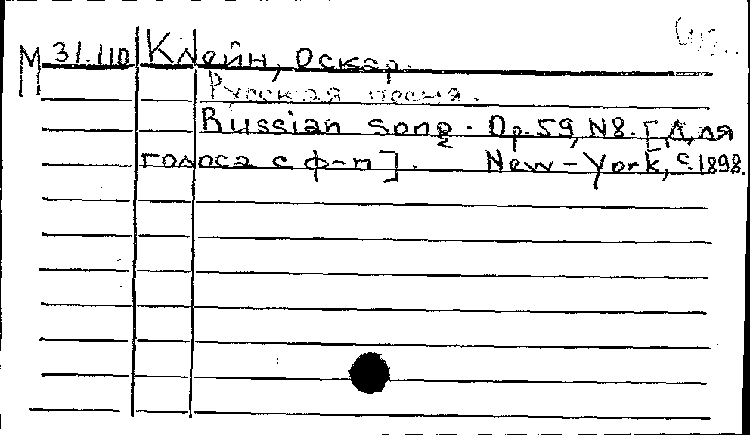 М 31.110 Клейн, Оскар.
Русская песня.
Russian song. Op. 59, N8. [Для
голоса с ф-п]. New-York, c. 1898.